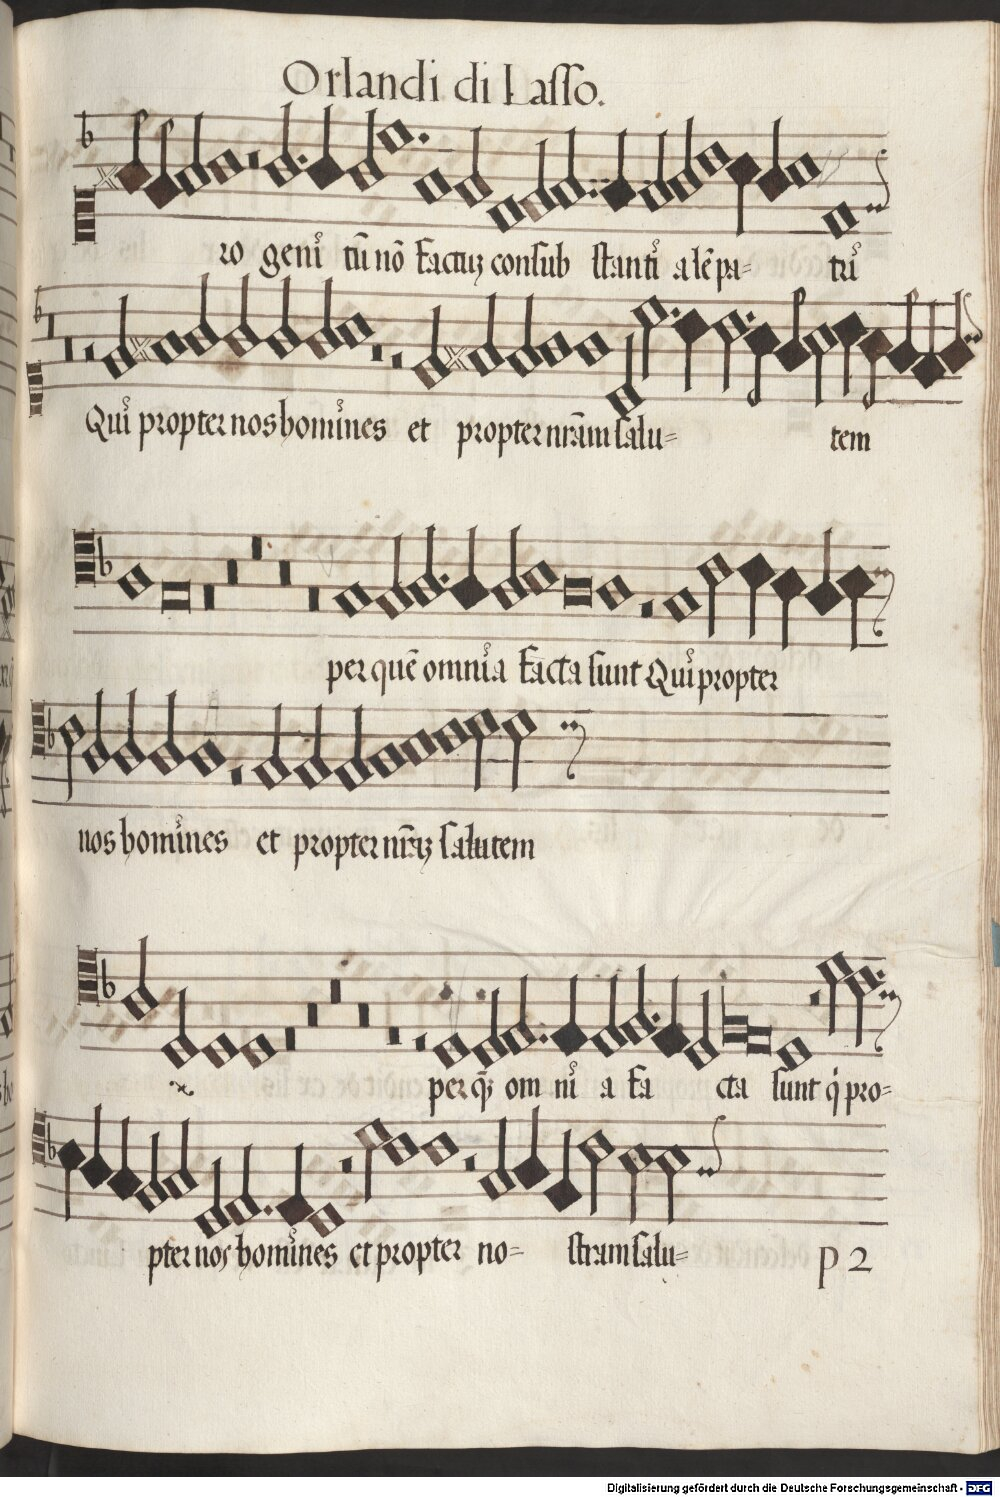 Orlandi di Lasso.
ro geni tū nō factuʒ consub stanti a lē pa= tri
Qui propter nos homines et propter nr̄am salu= tem
per quē omnia facta sunt Qui propter
nos homines et propter nr̄aʒ salutem
per qʒ om ni a fa cta sunt q̇ pro=
pter nos homines et propter no= stram salu=
p 2
Digitalisierung gefördert durch die Deutsche Forschungsgemeinschaft - DFG